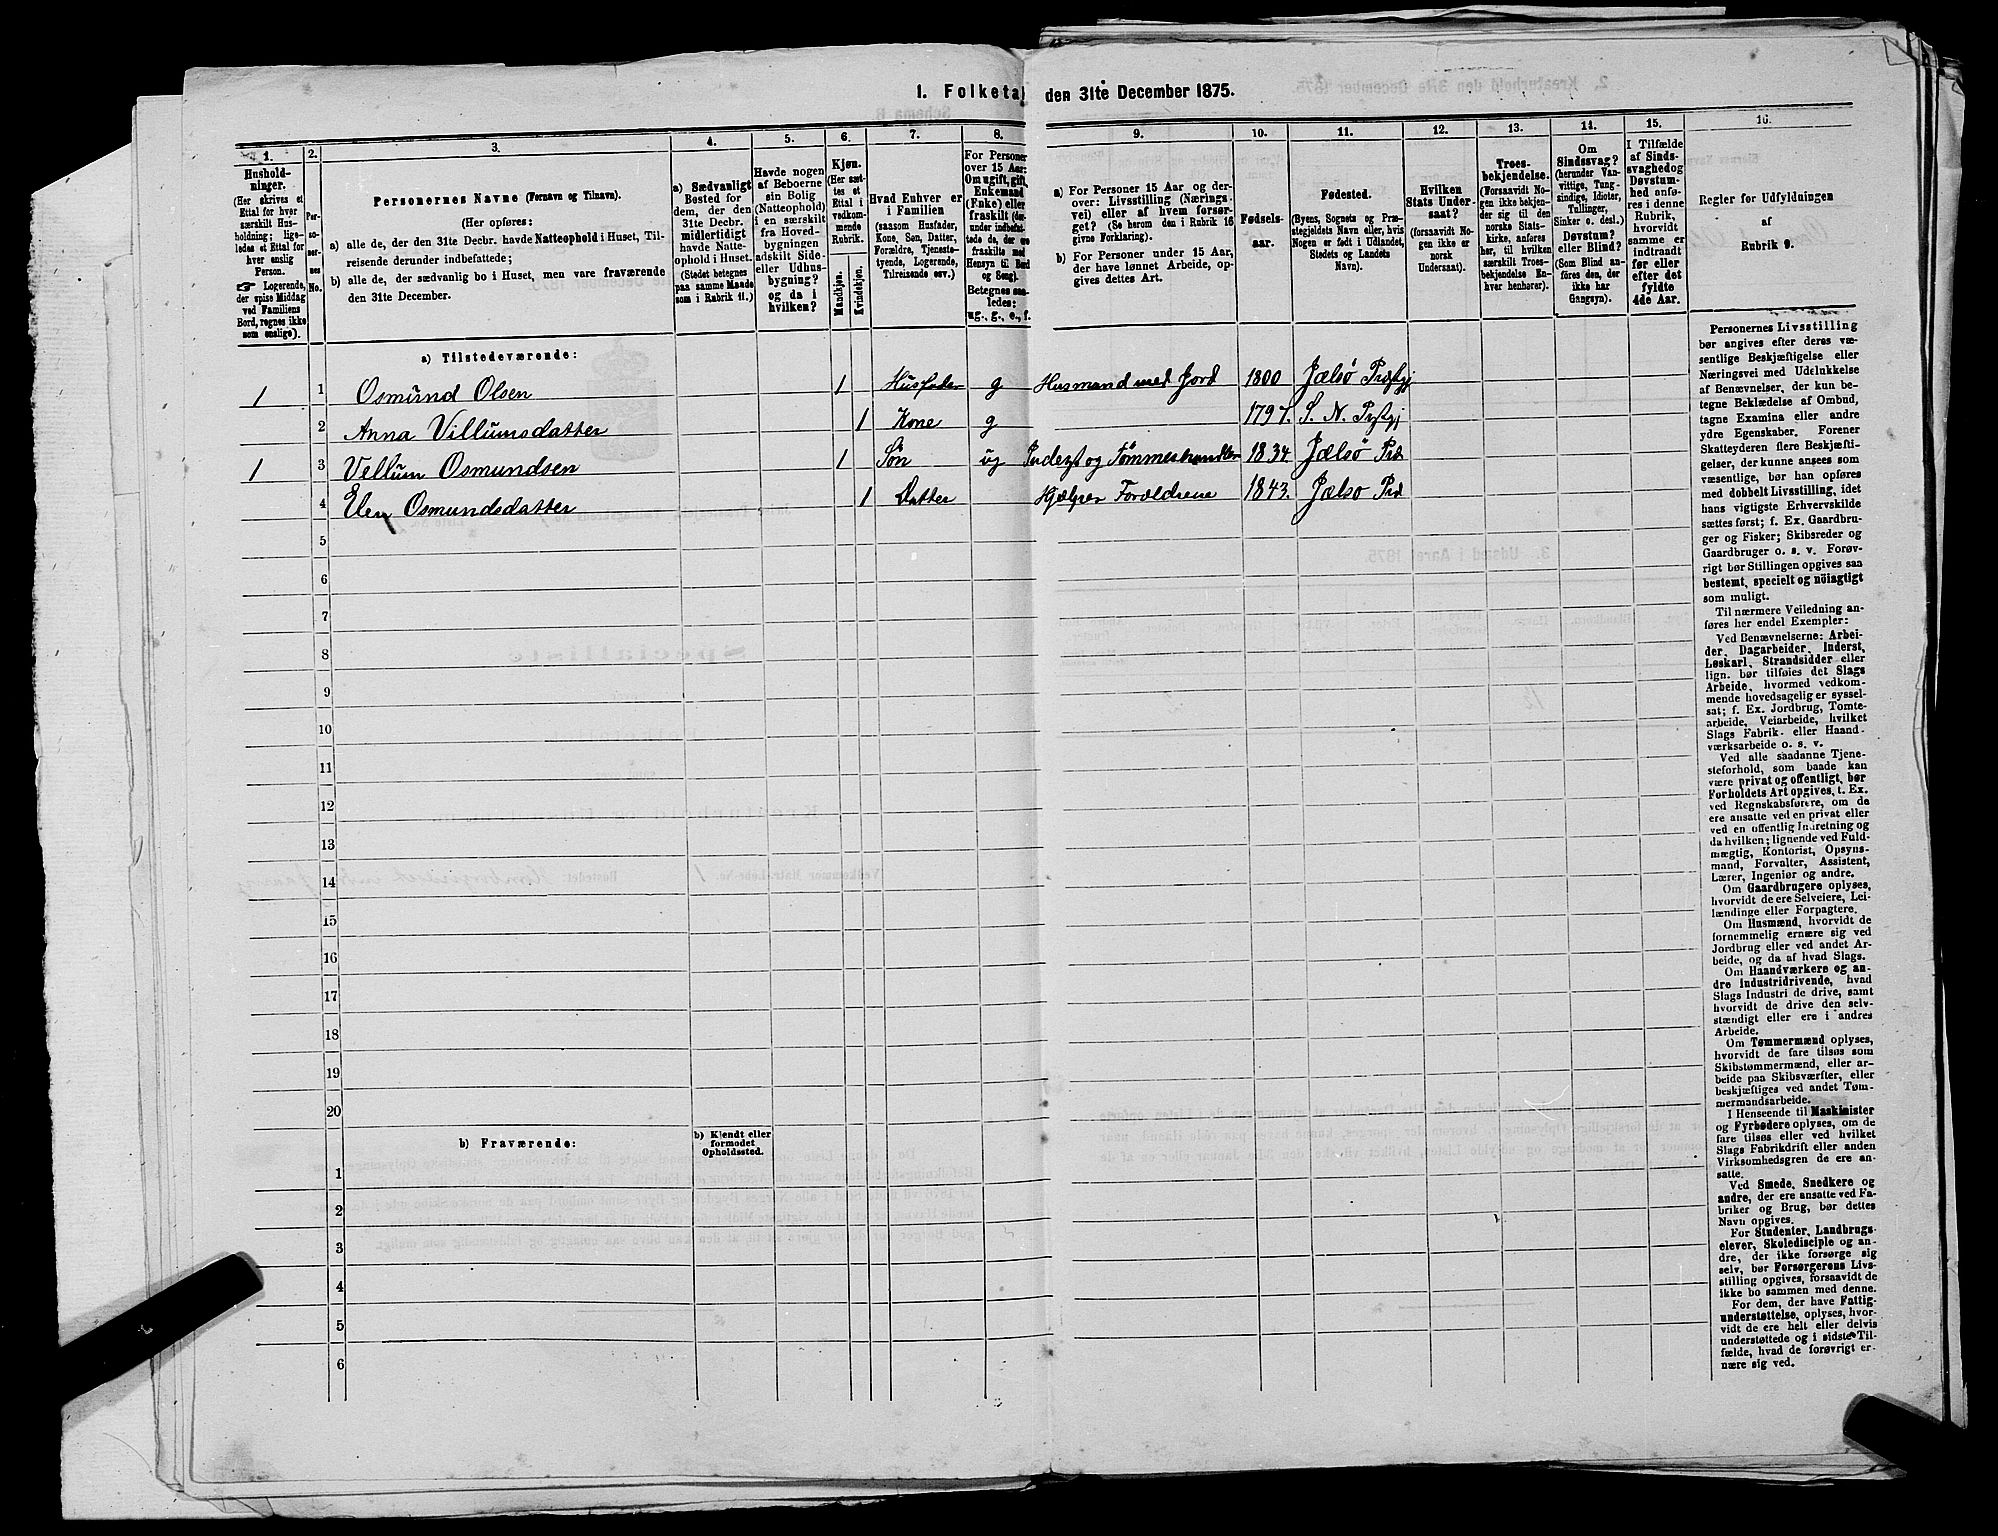 1. Folketæ
den 31te December 1875.
1.
Hushold-
ninger.
(Her skrives et
Ettal for hver
særskilt Hus-
holdning; lige-
ledes et Ettal for
hver enslig
Person.
☞ Logerende,
der spise Middag
ved Familiens
Bord, regnes ikke
som enslige).
2.
Per-
so-
ner-
nes
No.
3.
Personernes Navne (Fornavn og Tilnavn).
(Her opføres:
a) alle de, der den 31te Decbr. havde Natteophold i Huset, Til-
reisende derunder indbefattede;
b) alle de, der sædvanlig bo i Huset, men vare fraværende
den 31te December.
4.
a) Sædvanligt
Bosted for
dem, der den
31te Decbr.
midlertidigt
havde Natte-
ophold i Huset.
(Stedet betegnes
paa samme Maade
som i Rubrik 11.)
5.
Havde nogen
af Beboerne
sin Bolig
(Natteophold)
i en særskilt
fra Hoved-
bygningen
adskilt Side-
eller Udhus-
bygning?
og da i
hvilken?
6.
Kjøn.
(Her sæt-
tes et
Ettal i
vedkom-
mende
Rubrik.
Mandkjøn.
Kvindekjøn.
7.
Hvad Enhver er
i Familien
(saasom Husfader,
Kone, Søn, Datter,
Forældre, Tjeneste-
tyende, Logerende,
Tilreisende osv.)
8.
For Personer
over 15 Aar:
Om ugift, gift,
Enkemand
(Enke) eller
fraskilt (der-
under indbefat-
tede de, der ere
fraskilte med
Hensyn til Bord
og Seng).
Betegnes saa-
ledes:
ug., g., e., f.
9.
a) For Personer 15 Aar og der-
over: Livsstilling (Nærings-
vei) eller af hvem forsør-
get? (Se herom den i Rubrik 16
givne Forklaring).
b) For Personer under 15 Aar,
der have lønnet Arbeide, op-
gives dettes Art.
10.
Fødsels-
aar.
11.
Fødested.
(Byens, Sognets og Præ-
stegjeldets Navn eller, hvis
Nogen er født i Udlandet,
Stedets og Landets
Navn).
12.
Hvilken
Stats Under-
saat?
(forsaavidt No-
gen ikke er
norsk
Undersaat).
13.
Troes-
bekjendelse.
(Forsaavidt No-
gen ikke bekjen-
der sig til den
norske Stats-
kirke, anføres
her, til hvilken
særskilt Troes-
bekjendelse En-
hver henhører).
14.
Om
Sindssvag?
(herunder Van-
vittige, Tung-
sindige, Idioter,
Tullinger,
Sinker o. desl.)
Døvstum?
eller Blind?
(Som Blind an-
føres den, der
ikke har
Gangsyn).
15.
I Tilfælde
af Sinds-
svaghed og
Døvstum-
hed anfø-
res i denne
Rubrik,
hvorvidt
samme er
indtraadt
før eller
efter det
fyldte
4de Aar.
16.
Regler for Udfyldningen
af
Rubrik 9.
a) Tilstedeværende:
1 1 Osmund Olsen 1 Husfader g Husmand med Jord 1800 Jælsø Præstgj
2 Anna Villumsdatter 1 Kone g 1797. S. N. Prstgj
1 3 Vellum Osmundsen 1 Søn ug Inderst og Tømmerhandler 1834 Jælsø Præ
4 Elen Osmundsdatter 1 Datter Hjelper Forældrene 1843. Jælsø Præ
5
6
7
8
9
10
11
12
13
14
15
16
17
18
19
20
b) Fraværende:
b) Kjendt eller
formodet
Opholdssted.
1
2
3
4
5
6
Personernes Livsstilling
bør angives efter deres væ-
sentlige Beskjæftigelse eller
Næringsvei med Udelukkelse
af Benævnelser, der kun be-
tegne Beklædelse af Ombud,
tagne Examina eller andre
ydre Egenskaber. Forener
Skatteyderen flere Beskjæfti-
gelser, der kunne ansees som
væsentlige, bør han opføres
med dobbelt Livsstilling, idet
hans vigtigste Erhvervskilde
sættes først; f. Ex. Gaardbru-
ger og Fisker; Skibsreder og
Gaardbruger o. s. v. Forøv-
rigt bør Stillingen opgives saa
bestemt, specielt og nöiagtigt
som muligt.
Til nærmere Veiledning an-
føres her endel Exempler:
Ved Benævnelserne: Arbei-
der, Dagarbeider, Inderst,
Løskarl, Strandsidder eller
lign. bør tilføies det Slags
Arbeide, hvormed vedkom-
mende hovedsagelig er syssel-
sat; f. Ex. Jordbrug, Tomte-
arbeide, Veiarbeide, hvilket
Slags Fabrik- eller Haand-
værksarbeide o. s. v.
Ved alle saadanne Tjene-
steforhold, som baade kan
være privat og offentligt, bør
Forholdets Art opgives, t. Ex.
ved Regnskabsførere, om de
ere ansatte ved en privat eller
ved en offentlig Indretning og
da hvilken; lignende ved Fuld-
mægtig, Kontorist, Opsyns-
mand, Forvalter, Assistent,
Lærer, Ingeniør og andre.
Om Gaardbrugere oplyses,
hvorvidt de ere Selveiere, Lei-
lændinge eller Forpagtere.
Om Husmænd, hvorvidt de
fornemmelig ernære sig ved
Jordbrug eller ved andet Ar-
beide, og da af hvad Slags.
Om Haandværkere og an-
dre industridrivende, hvad
Slags Industri de drive, samt
hvorvidt de drive den selv-
stændigt eller ere i andres
Arbeide.
Om Tømmermænd oplyses,
hvorvidt de fare tilsøs som
Skibstømmermænd, eller ar-
beide paa Skibsværfter, eller
beskjæftiges ved andet Tøm-
mermandsarbeide.
I Henseende til Maskinister
og Fyrbødere oplyses, om de
fare tilsøs eller ved hvilket
Slags Fabrikdrift eller anden
Virksomhedsgren de ere an-
satte.
Ved Smede, Snedkere og
andre, der ere ansatte ved Fa-
briker og Brug, bør dettes
Navn opgives.
For Studenter, Landbrugs-
elever, Skoledisciple og an-
dre, der ikke forsørge sig
selv, bør Forsørgerens Livs-
stilling opgives, forsaavidt de
ikke bo sammen med denne.
For dem, der have Fattig-
understøttelse, oplyses, hvor-
vidt de ere helt eller delvis
understøttede og i sidste Til-
fælde, hvad de forøvrigt er-
nære sig ved.